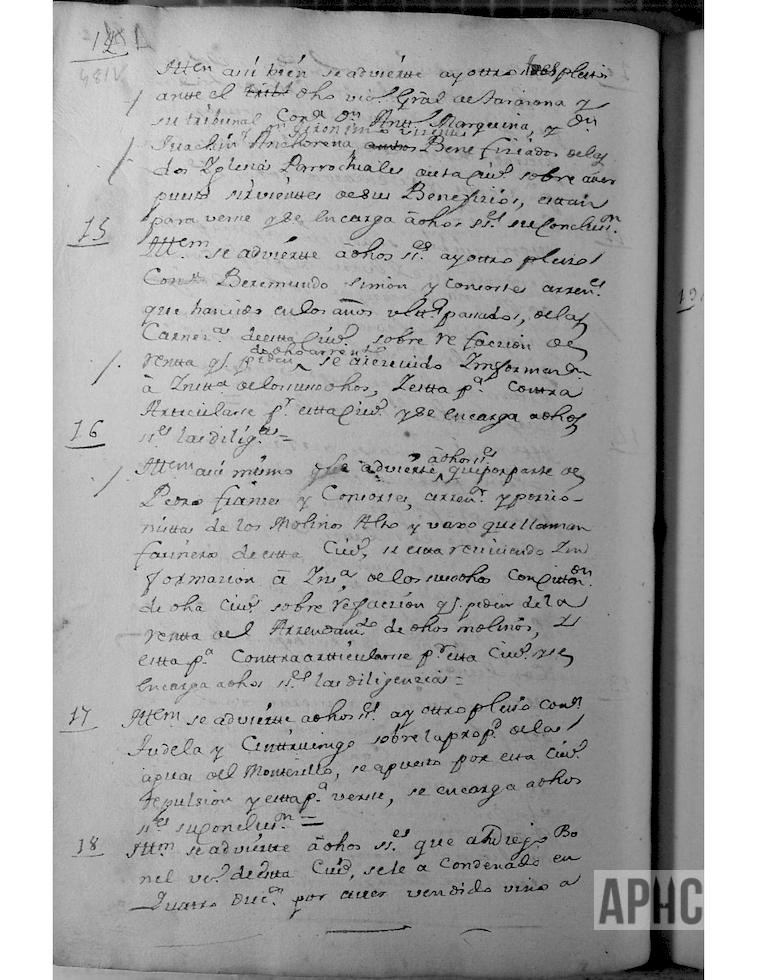 14
Ittem assi bien se advierte ay ottro pleito
ante el dho vic.º Gral de Tarazona y
su tribunal Con.ª D.n Antt.º Marquina, y D.n
Geronimo
Juachin Anchorena Benefiziados de las
dos Iglesias Parrochiales de esta Ciu.d sobre aver
puesto sirvientes de sus Beneficios, estan
para verse y se encarga a dhos ss.es su Conclus.on
15
Ittem se advierte a dhos ss.es ay ottro pleito
Con Beremundo simon y consortes arren.es
que han sido en los años ultt.s pasados, de las
Carner.as de estta Ciu.d sobre refaccion de
de dho arrend.to
rentta q.e piden se a recivido Informaz.on
a Instt.ª de los susodhos, I estta p.ª Contra
Articularse p.r estta Ciu.d y se encarga a dhos
ss.es las dilig.as =
16
a dhos ss.es
Ittem assi mismo se advierte, que por parte de
Pedro frances y Consortes, arren.es y porcio-
nisttas de los Molinos Alto y vaxo que llaman
farinero de estta Ciu.d, se estta reciviendo In
formacion a Ins.ª de los susodhos con Citt.on
de dha Ciu.d sobre refaccion q.e piden de la
rentta del Arrendam.to de dhos molinos, I
estta p.ª Conttraartticularse p.r estta Ciu.d y se
encarga a dhos ss.es las diligencias =
17
Ittem se advierte a dhos ss.es ay ottro pleito con
Tudela y Cinttruenigo sobre la prop.d de las
aguas del Monterillo, se a puesto por esta Ciu.d
Repulsion y estta p.ª verse, se encarga a dhos
ss.es su Conclus.on =
18
Ittem se advierte a dhos ss.es que a Diego Bo
nel vez.º de estta Ciu.d, se le a Condenado en
Quatro duc.s por aver vendido vino a
19
APHC